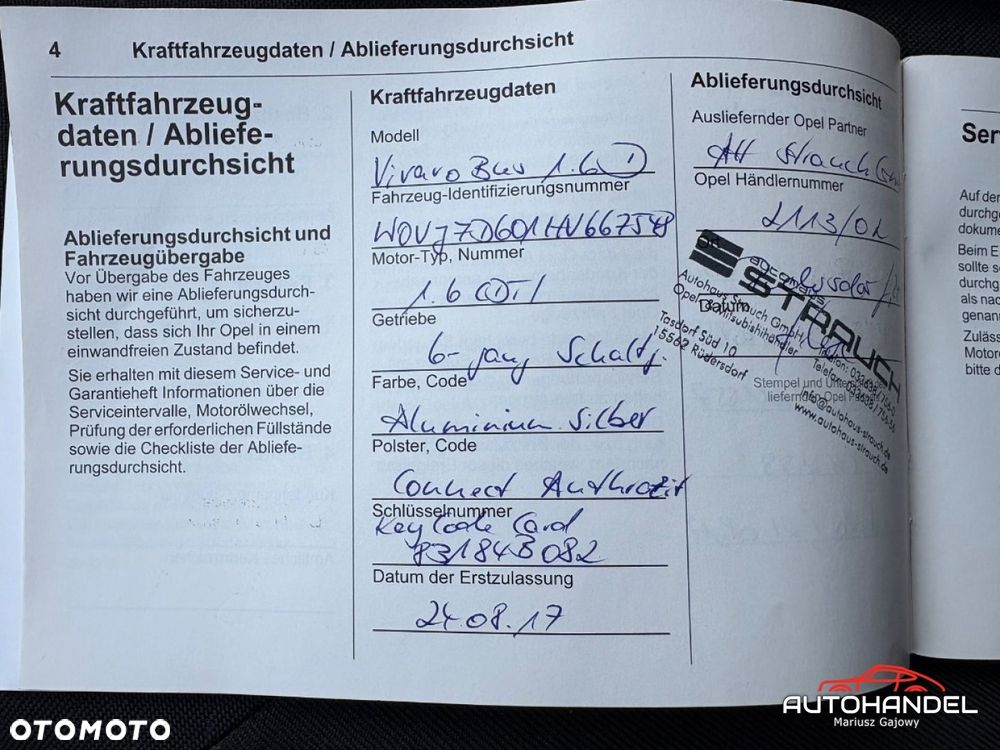 4
Kraftfahrzeugdaten / Ablieferungsdurchsicht
Kraftfahrzeug-
daten / Abliefe-
rungsdurchsicht
Ablieferungsdurchsicht und
Fahrzeugübergabe
Vor Übergabe des Fahrzeuges
haben wir eine Ablieferungsdurch-
sicht durchgeführt, um sicherzu-
stellen, dass sich Ihr Opel in einem
einwandfreien Zustand befindet.
Sie erhalten mit diesem Service- und
Garantieheft Informationen über die
Serviceintervalle, Motorölwechsel,
Prüfung der erforderlichen Füllstände
sowie die Checkliste der Abliefe-
rungsdurchsicht.
Kraftfahrzeugdaten
Modell
Vivaro Bus 1.6 D
Fahrzeug-Identifizierungsnummer
W0VJ7D601HV667548
Motor-Typ, Nummer
1.6 CDTI
Getriebe
6-gang Schaltg.
Farbe, Code
Aluminium Silber
Polster, Code
Connect Anthrazit
Schlüsselnummer
KeyCode Card
83184B082
Datum der Erstzulassung
24.08.17
Ablieferungsdurchsicht
Ausliefernder Opel Partner
AH Strauch
Opel Händlernummer
2113/01
Ort
Datum
autohaus
STRAUCH
Autohaus Strauch GmbH
Opel & Mitsubishihändler
Tasdorf Süd 10
15562 Rüdersdorf
Telefon:
Telefax:
info@autohaus-strauch.de
www.autohaus-strauch.de
Stempel und
Ser
Auf der
durchge
dokume
Beim E
sollte s
durchg
als nac
genan
Zuläss
Motor
bitte d
OTOMOTO
AUTOHANDEL
Mariusz Gajowy